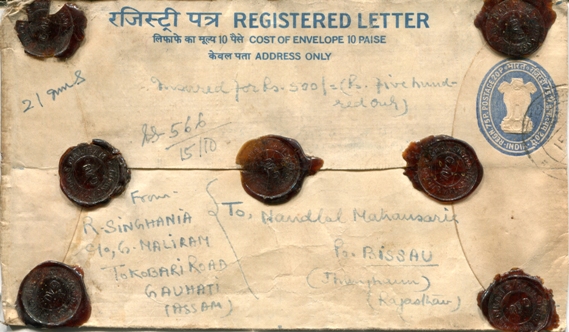 रजिस्ट्री पत्र REGISTERED LETTER
लिफाफे का मूल्य 10 पैसे COST OF ENVELOPE 10 PAISE
केवल पता ADDRESS ONLY
Insured for Rs. 500/= (Rs. five hund-
red only)
21 gms
15/10
From-
R. SINGHANIA
c/o, G. MALIRAM
TOKOBARI ROAD
GAUHATI
(ASSAM)
To, Nandlal Mahansaria
Po. BISSAU
(Jhunjhunu)
(Rajasthan)